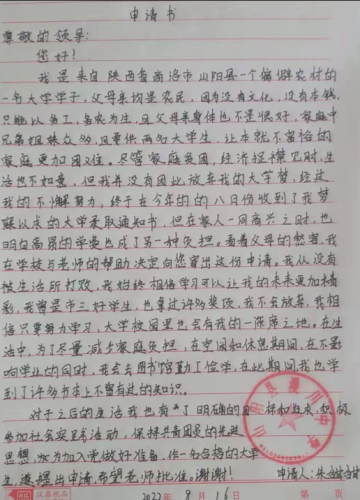 申请书
尊敬的领导:
您好!
我是来自陕西省商洛市山阳县一个偏僻农村的
一名大学学子,父母亲均是农民,因为没有文化,没有本钱,
只能以务工,务农为生,且父母亲身体也不是很好,家庭中
兄弟姐妹众多,且要供两名大学生,让本就不富裕的
家庭更加困难。尽管家庭贫困,经济捉襟见肘,生
活也不如意,但我并没有因此放弃我的大学梦,经过
我的不懈努力,终于在今年的的八日份收到了我梦
寐以求的大学录取通知书,但在家人一同高兴之时,也
明白高昂的学费也成了另一种负担。看着父母的愁容,我
在学校与老师的帮助决定向您写出这份申请。我从没有
被生活所打败,我始终相信学习可以让我的未来更加精
彩,我曾是市三好学生,也拿过许多奖项,我不会放弃,我相
信只要努力学习,大学校园里也会有我的一席之地。在生
活中,为了尽量减少家庭负担,在空闲和休息期间,在不影
响学业的同时,我会去图书馆勤工俭学,在此期间我也学
到了许多书本上不曾有过的知识。
对于之后的生活我也有了明确的目标和追求,积极
参加社会实践活动,保持共青团员的先进
思想,为加入党做好准备,作一名合格的大学
生,遂提出申请,希望老师批准。谢谢!
申请人:朱
2023年9月16日